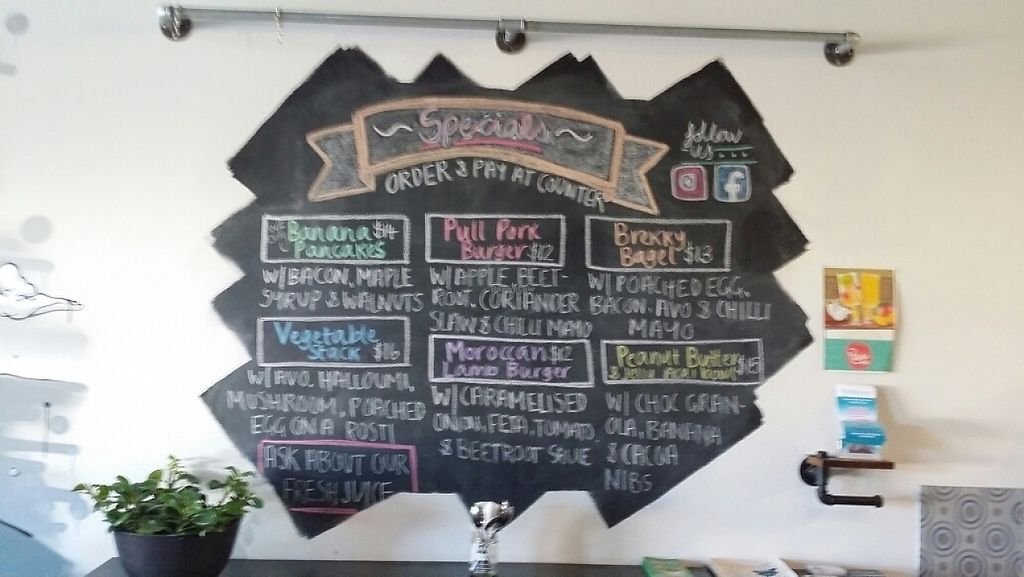 Specials
ORDER & PAY AT COUNTER
follow
us...
Banana $14
Pancakes
W/ BACON, MAPLE
SYRUP & WALNUTS
Pull Pork
Burger $12
W/ APPLE, BEET-
ROOT, CORIANDER
SLAW & CHILLI MAYO
Brekky
Bagel $13
W/ POACHED EGG,
BACON, AVO & CHILLI
MAYO
Vegetable
Stack $16
W/ AVO, HALLOUMI,
MUSHROOM, POACHED
EGG ON A ROSTI
Moroccan $12
Lamb Burger
W/ CARAMELISED
ONION, FETA, TOMATO,
& BEETROOT
Peanut Butter $15
& 
W/ CHOC GRAN-
OLA, BANANA
& CACAO
NIBS
ASK ABOUT OUR
FRESH JUICE